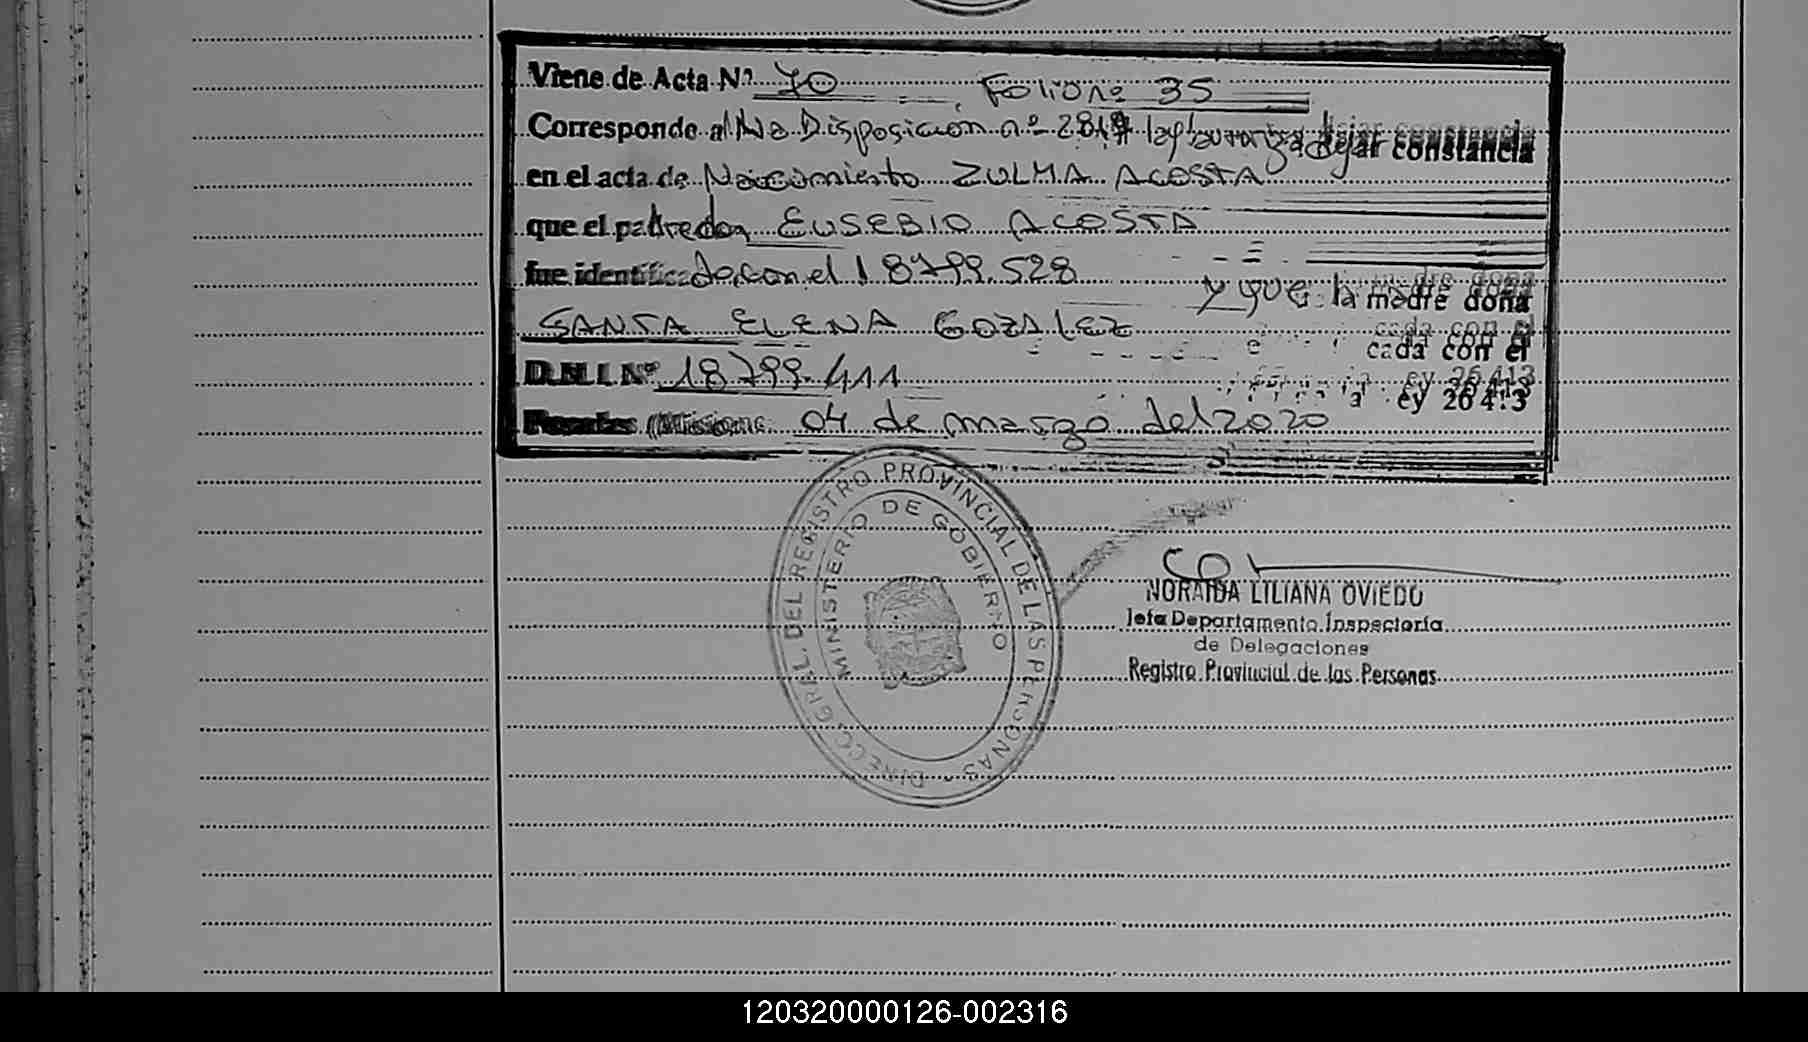 Viene de Acta Nº 70 Folio nº 35
Corresponde a la Disposición nº 2819 dejar constancia
en el acta de Nacimiento ZULMA ACOSTA
que el padre don EUSEBIO ACOSTA
fue identificado con el 18799.528 y que la madre doña
SANTA ELENA GOZALEZ cada con el
D.N.I. Nº 18799.411 ey 26413
Posadas (Misiones 04 de marzo del 2020
DIRECC. GRAL. DEL REGISTRO PROVINCIAL DE LAS PERSONAS
MINISTERIO DE GOBIERNO
NORAIDA LILIANA OVIEDO
Jefa Departamento Inspectoría
de Delegaciones
Registro Provincial de las Personas
120320000126-002316